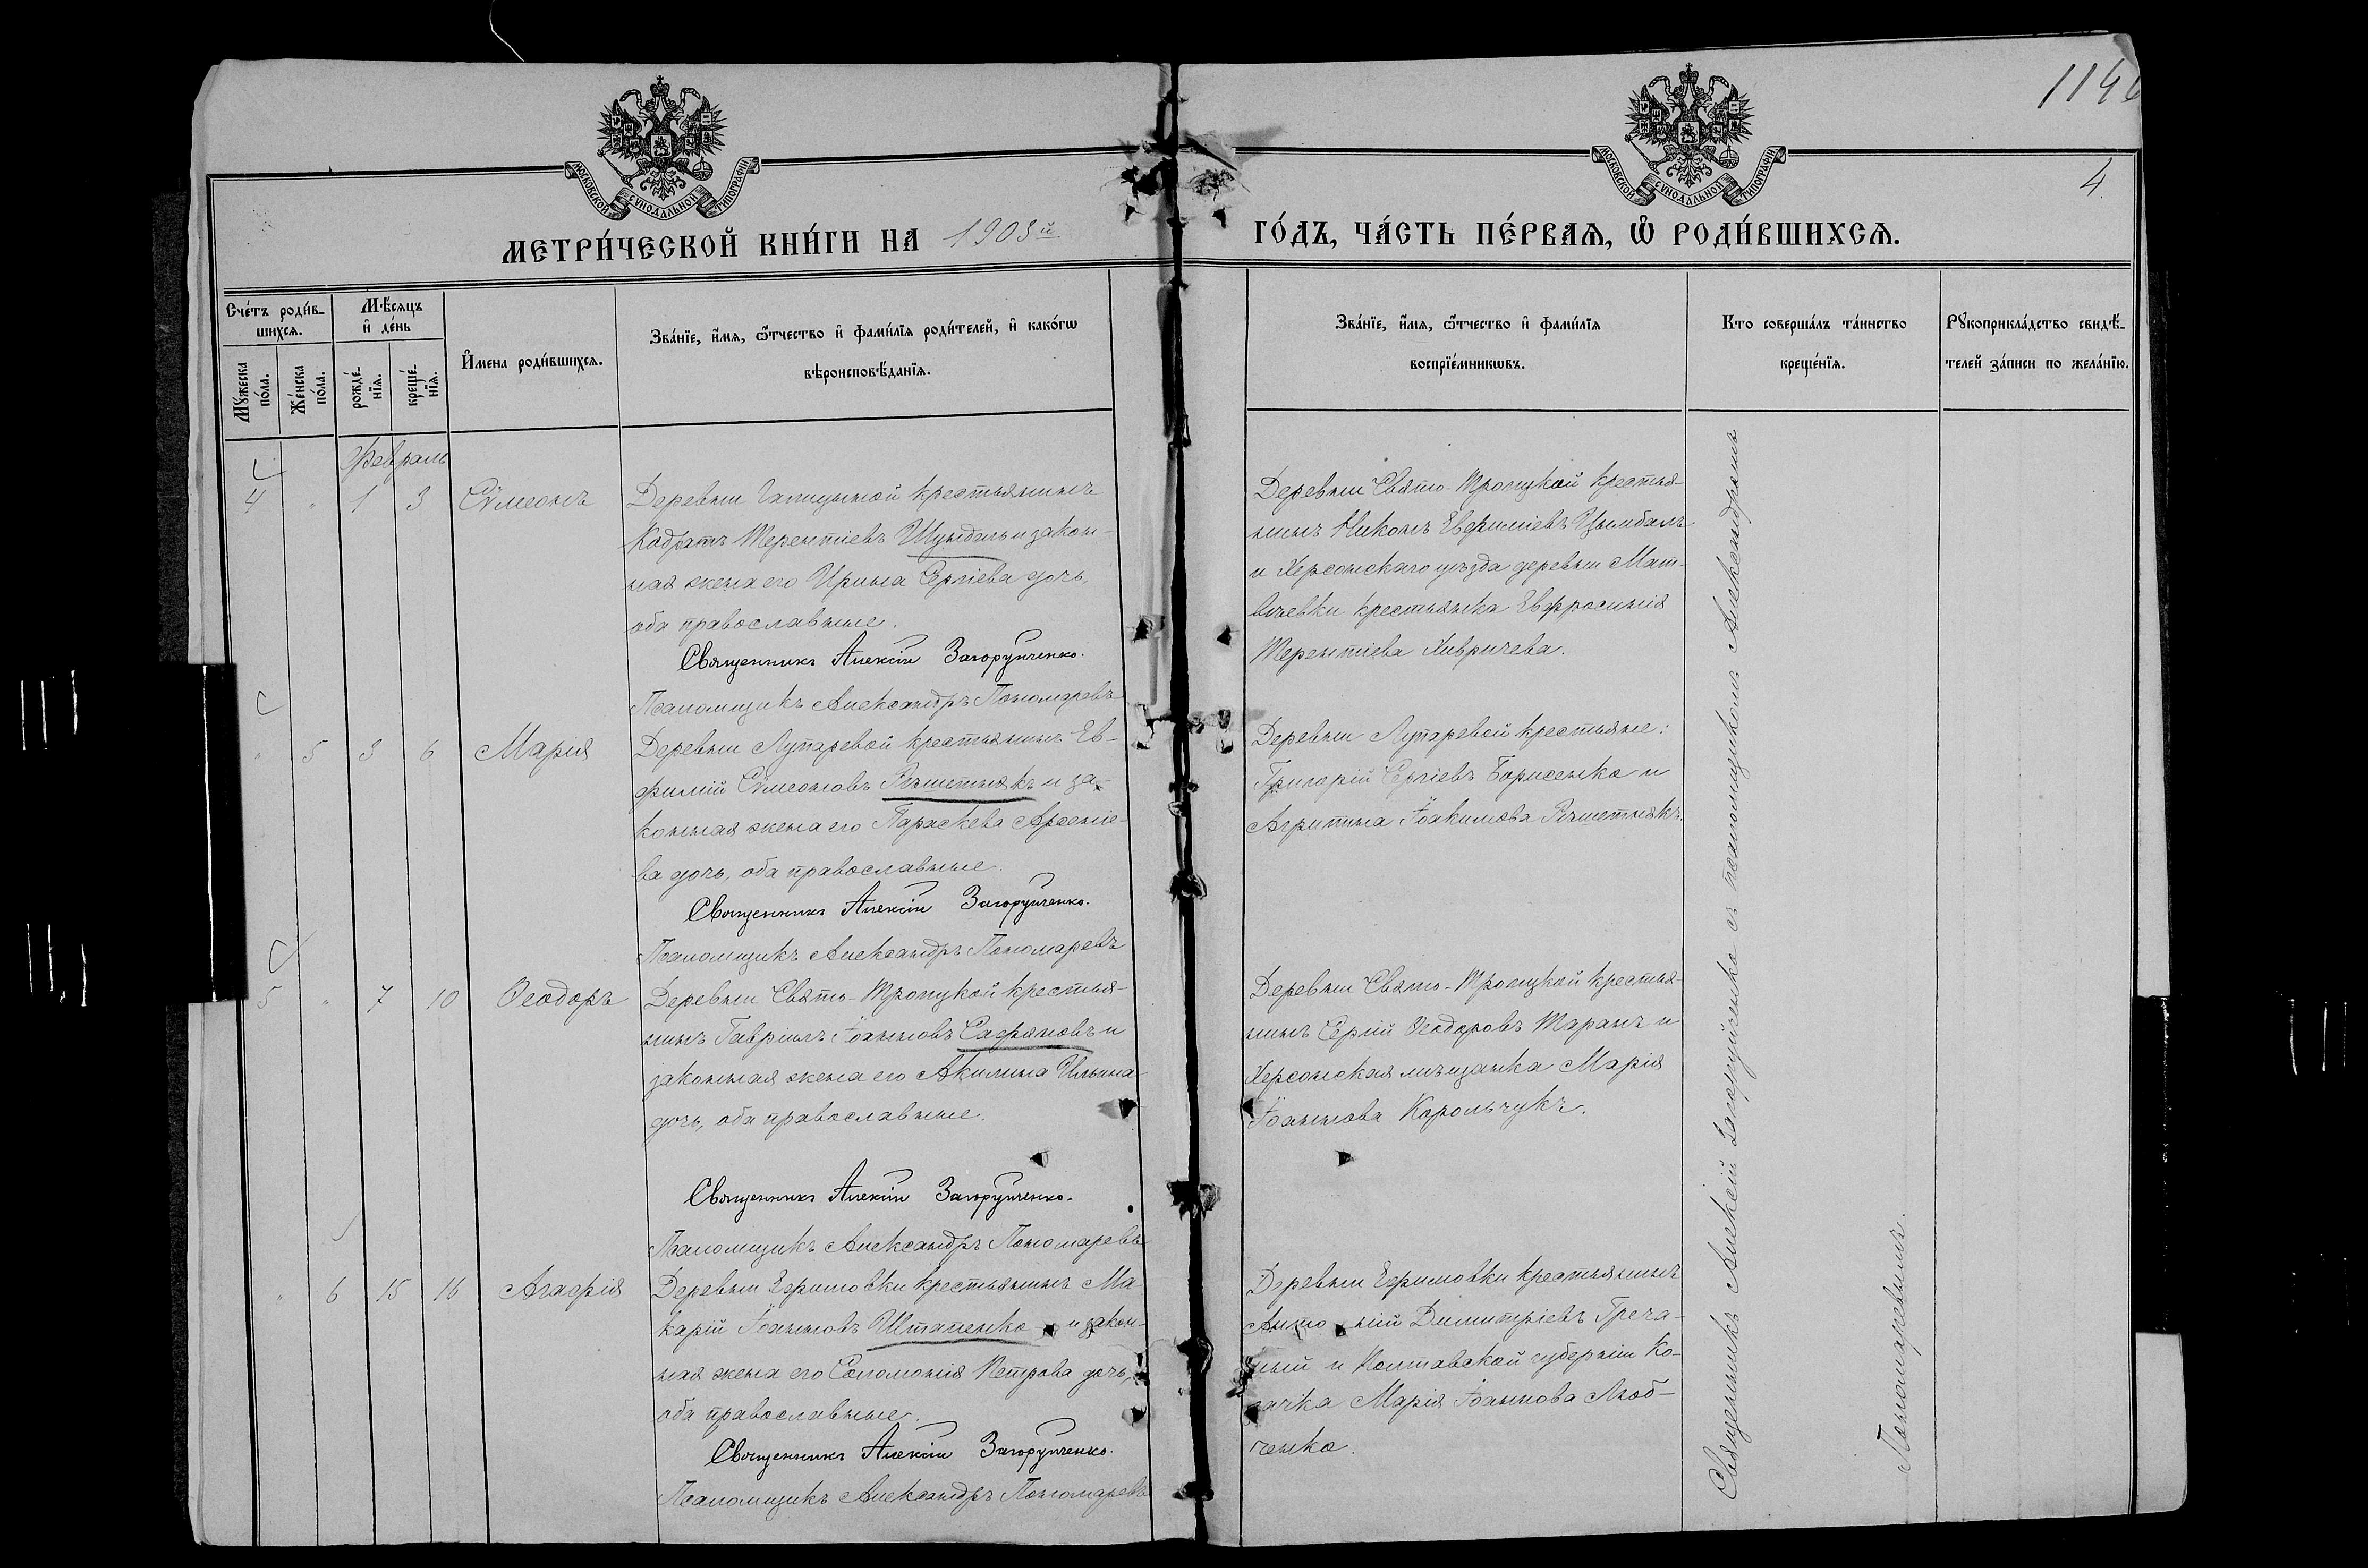 1146
4.
МОСКОВСКОЙ СѴНОДАЛЬНОЙ ТИПОГРАФІИ
МОСКОВСКОЙ СѴНОДАЛЬНОЙ ТИПОГРАФІИ
МЕТРИ́ЧЕСКОЙ КНИ́ГИ НА 1903й ГО́ДЪ, ЧА́СТЬ ПЕ́РВАѦ, Ѡ҆ РОДИ́ВШИХСѦ.
Сче́тъ роди́в-
шихсѧ.
Мꙋ́жеска по́ла.
Же́нска по́ла.
Мѣ́сѧцъ
и҆ де́нь
рожде́-
нїѧ.
креще́-
нїѧ.
И҆мена роди́вшихсѧ.
Зва́нїе, и҆́мѧ, ѻ҆́тчество и҆ фами́лїѧ роди́телей, и҆ како́гѡ
вѣроисповѣ́данїѧ.
Зва́нїе, и҆́мѧ, ѻ҆́тчество и҆ фами́лїѧ
воспрїе́мникѡвъ.
Кто соверша́лъ та́инство
креще́нїѧ.
Рꙋкоприкла́дство свидѣ́-
телей за́писи по жела́нїю.
Февраль
4 " 1 3 Сѵмеонъ
Деревни Галицыной крестьянинъ
Кодратъ Терентіевъ и закон-
ная жена его Ирина Сергіева дочь,
оба православные.
Священникъ Алексій Загоруйченко.
Псаломщикъ Александръ Пономаревъ
Деревни Свято-Троицкой крестья-
нинъ Никонъ Евфиміевъ Цымбалъ
и Херсонскаго уѣзда деревни Мат-
вѣевки крестьянка Евфросинія
Терентіева
" 5 3 6 Марія
Деревни Лупаревой крестьянинъ Ев-
фимій Сѵмеоновъ Рѣшетнякъ и за-
конная жена его Параскева Арсеніе-
ва дочь, оба православные.
Священникъ Алексій Загоруйченко.
Псаломщикъ Александръ Пономаревъ
Деревни Лупаревой крестьяне:
Григорій Сергіевъ Борисенко и
Агрипина Іоакимова Рѣшетнякъ.
5 " 7 10 Ѳеодоръ
Деревни Свято-Троицкой крестья-
нинъ Гавріилъ Іоанновъ Сафяновъ и
законная жена его Акилина Ильина
дочь, оба православные.
Священникъ Алексій Загоруйченко.
Псаломщикъ Александръ Пономаревъ
Деревни Свято-Троицкой крестья-
нинъ Сергій Ѳеодоровъ Таранъ и
Херсонская мѣщанка Марія
Іоаннова Корольчукъ.
" 6 15 16 Агафія
Деревни Ефимовки крестьянинъ Ма-
карій Іоанновъ Штапенко и закон-
ная жена его Соломонія Петрова дочь,
оба православные.
Священникъ Алексій Загоруйченко.
Псаломщикъ Александръ Пономаревъ
Деревни Ефимовки крестьянинъ
Антоній Димитріевъ Греча-
ный и Полтавской губерніи ко-
зачка Марія Іоаннова Люб-
ченко.
Священникъ Алексій Загоруйченко съ псаломщикомъ Александромъ
Пономаревымъ.